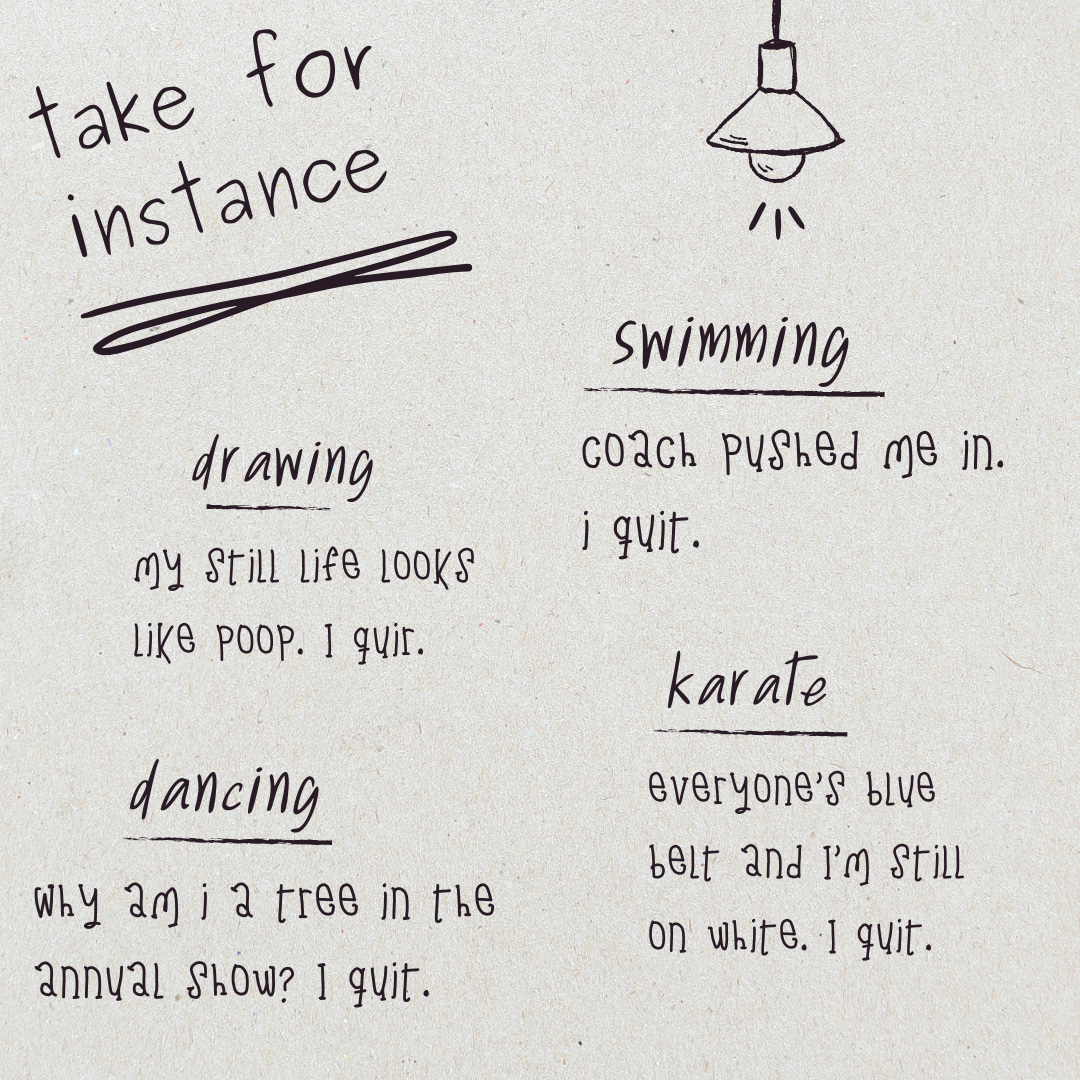 take for
instance
drawing
my still life looks
like poop. I quir.
dancing
why am i a tree in the
annual show? I quit.
swimming
coach pushed me in.
i quit.
karate
everyone's blue
belt and I'm still
on white. I quit.